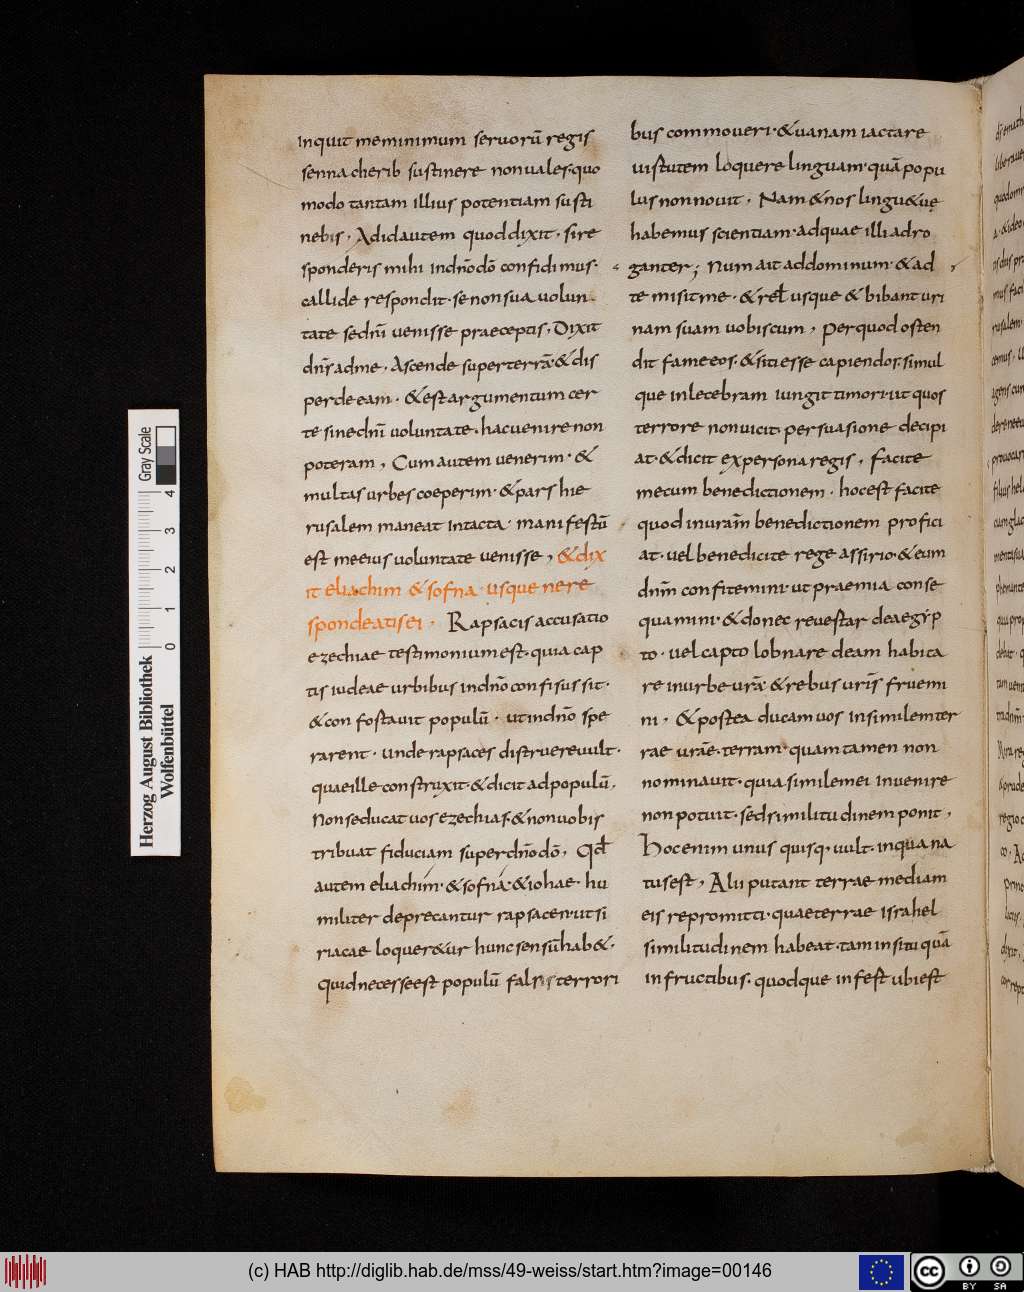 inquit me minimum seruorū regis
senna cherib sustinere non uales·quo
modo tantam illius potentiam susti
nebis· Ad id autem quod dixit· si re
sponderis mihi in dn̄o dō confidimus·
callide respondit· se non sua uolun
tate sed dn̄i uenisse praeceptis· Dixit
dn̄s ad me· Ascende super terrā·& dis
perde eam· & est argumentum cer
te sine dn̄i uoluntate· hac uenire non
poteram, Cum autem uenerim· &
multas urbes coeperim·& pars hie
rusalem maneat intacta· manifestū
est me eius uoluntate uenisse, & dix
it eliachim & sofna· usque ne re
spondeatis ei· Rapsacis accusatio
ezechiae testimonium est· quia cap
tis iudeae urbibus in dn̄o confisus sit·
& confostauit populū· ut in dn̄o spe
rarent· unde rapsaces distruere uult·
quae ille construxit·& dicit ad populū,
Non seducat uos ezechias·& non uobis
tribuat fiduciam super dn̄o dō, Qd̄
autem eliachim·& sofna·& iohae· hu
militer deprecantur rapsacen·ut si
riacae loquer&ur hunc sensū hab&·
quid necesse est populū falsis terrori
bus commoueri·& uanam iactare
uistutem loquere linguam·quā popu
lus non nouit· Nam & nos lingu&uę
habemus scientiam·ad quae illi adro
ganter; Num ait ad dominum·& ad
te misit me·& rel̄ usque & bibant uri
nam suam uobiscum, Per quod osten
dit fame eos·& siti esse capiendos·simul
que inlecebram iungit timori·ut quos
terrore non uicit·persuasione decipi
at·& dicit ex persona regis, Facite
mecum benedictionem· hoc est facite
quod in uram̄ benedictionem profici
at·uel benedicite rege assirio·& eum
dnm̄ confitemini·ut praemia conse
quamini·& donec reuestar de aegẏp
to·uel capto lobnare deam habita
re in urbe urā·& rebus urīs fruemi
ni· & postea ducam uos in similem ter
rae urāe·terram·quam tamen non
nominauit·quia similem ei inuenire
non potuit·sed similitudinem ponit,
Hoc enim unus quisq· uult·in qua na
tus est, Alii putant terrae mediam
eis repromitti·quae terrae israhel
similitudinem habeat·tam in situ quā
in fructibus· quodque infest ubi est
Herzog August Bibliothek
Wolfenbüttel
0 1 2 3 4
Gray Scale
(c) HAB http://diglib.hab.de/mss/49-weiss/start.htm?image=00146
cc BY SA